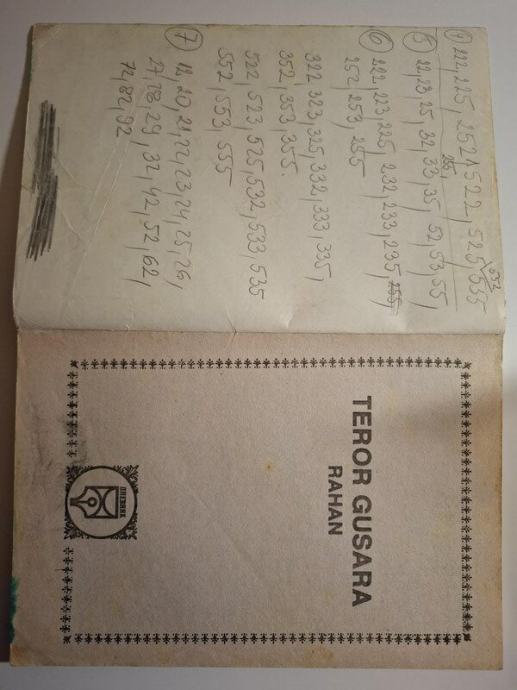 ④ 222, 225, 252, 522, 525, 555
255,
552
⑤ 22, 23, 25, 32, 33, 35, 52, 53, 55,
⑥ 222, 223, 225, 232, 233, 235, 255
252, 253, 255
322, 323, 325, 332, 333, 335,
352, 353, 355.
522, 523, 525, 532, 533, 535
552, 553, 555
⑦ 12, 20, 21, 22, 23, 24, 25, 26,
27, 28, 29, 32, 42, 52, 62,
72, 82, 92
TEROR GUSARA
RAHAN
DNEVNIK